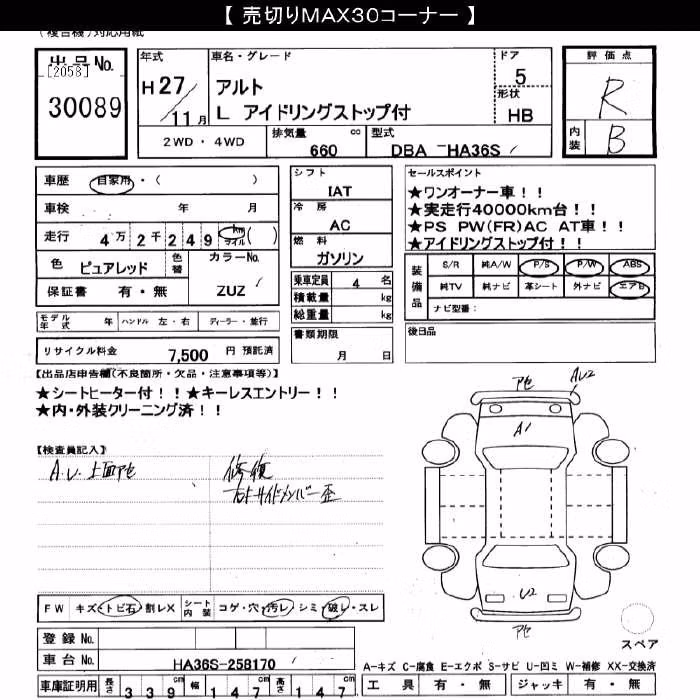 【 売切りMAX30コーナー 】
(複合機)対応用紙
出品No.
[2058]
30089
年式
H 27/11月
車名・グレード
アルト
L アイドリングストップ付
ドア
5
形状
HB
評価点
R
内装
B
2WD・4WD
排気量 660 cc
型式 DBA -HA36S
車歴 自家用・( )
車検 年 月
走行 4万2千249 km マイル ( )
色 ピュアレッド
色替
カラーNo. ZUZ
保証書 有・無
シフト
IAT
冷房
AC
燃料
ガソリン
乗車定員 4 名
積載量 kg
総重量 kg
書類期限
月 日
セールスポイント
★ワンオーナー車!!
★実走行40000km台!!
★PS PW(FR)AC AT車!!
★アイドリングストップ付!!
装備品
S/R 純A/W P/S P/W ABS
純TV 純ナビ 革シート 外ナビ エアB
ナビ型番:
後日品
モデル年式 年 ハンドル 左・右 ディーラー・並行
リサイクル料金 7,500 円 預託済
【出品店申告欄(不良箇所・欠品・注意事項等)】
★シートヒーター付!!★キーレスエントリー!!
★内・外装クリーニング済!!
【検査員記入】
A.U.上面アセ
修復
右Fサイドメンバー歪
アセ
AU2
A1
U2
アセ
スペア
FW キズ・トビ石・割レX
シート内装 コゲ・穴・汚レ・シミ・破レ・スレ
登録No.
車台No. HA36S-258170
車庫証明用 長さ 339cm 幅 147cm 高さ 147cm
A-キズ C-腐食 E-エクボ S-サビ U-凹ミ W-補修 XX-交換済
工具 有・無 ジャッキ 有・無